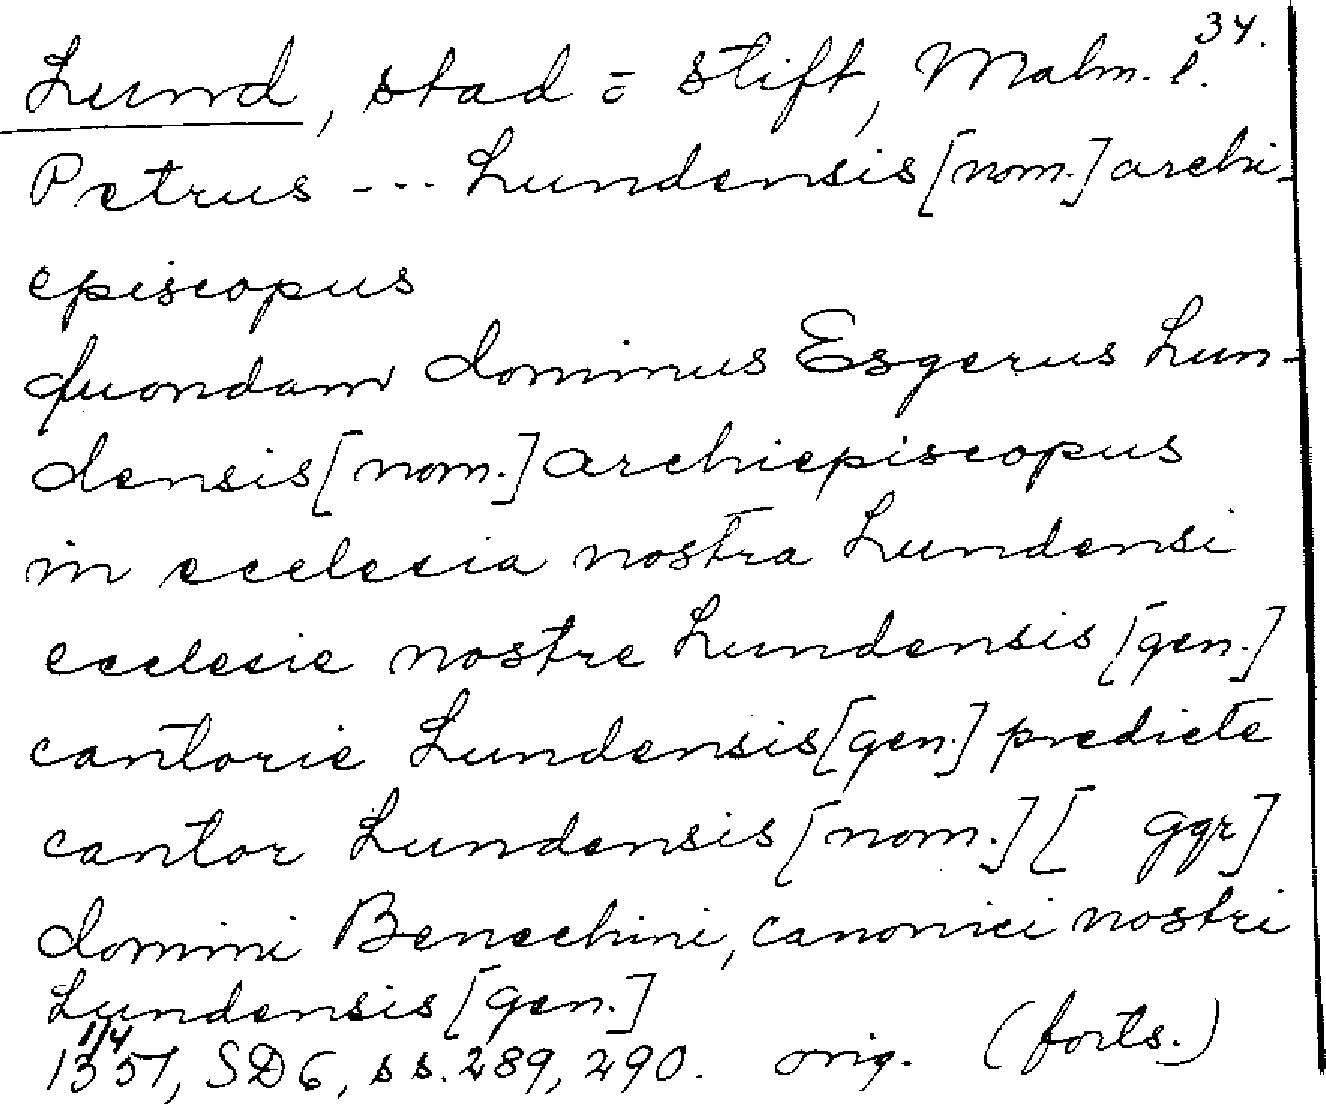 34.
Lund, stad = stift, Malm. l.
Petrus --- Lundensis [nom.] archi-
episcopus
quondam dominus Esgerus Lun-
densis [nom.] archiepiscopus
in ecclesia nostra Lundensi
ecclesie nostre Lundensis [gen.]
cantorie Lundensis [gen.] predicte
cantor Lundensis [nom.] [ ggr]
domini Benechini, canonici nostri
Lundensis [gen.]
1/4
1351, SD 6, ss. 289, 290. orig. (forts.)